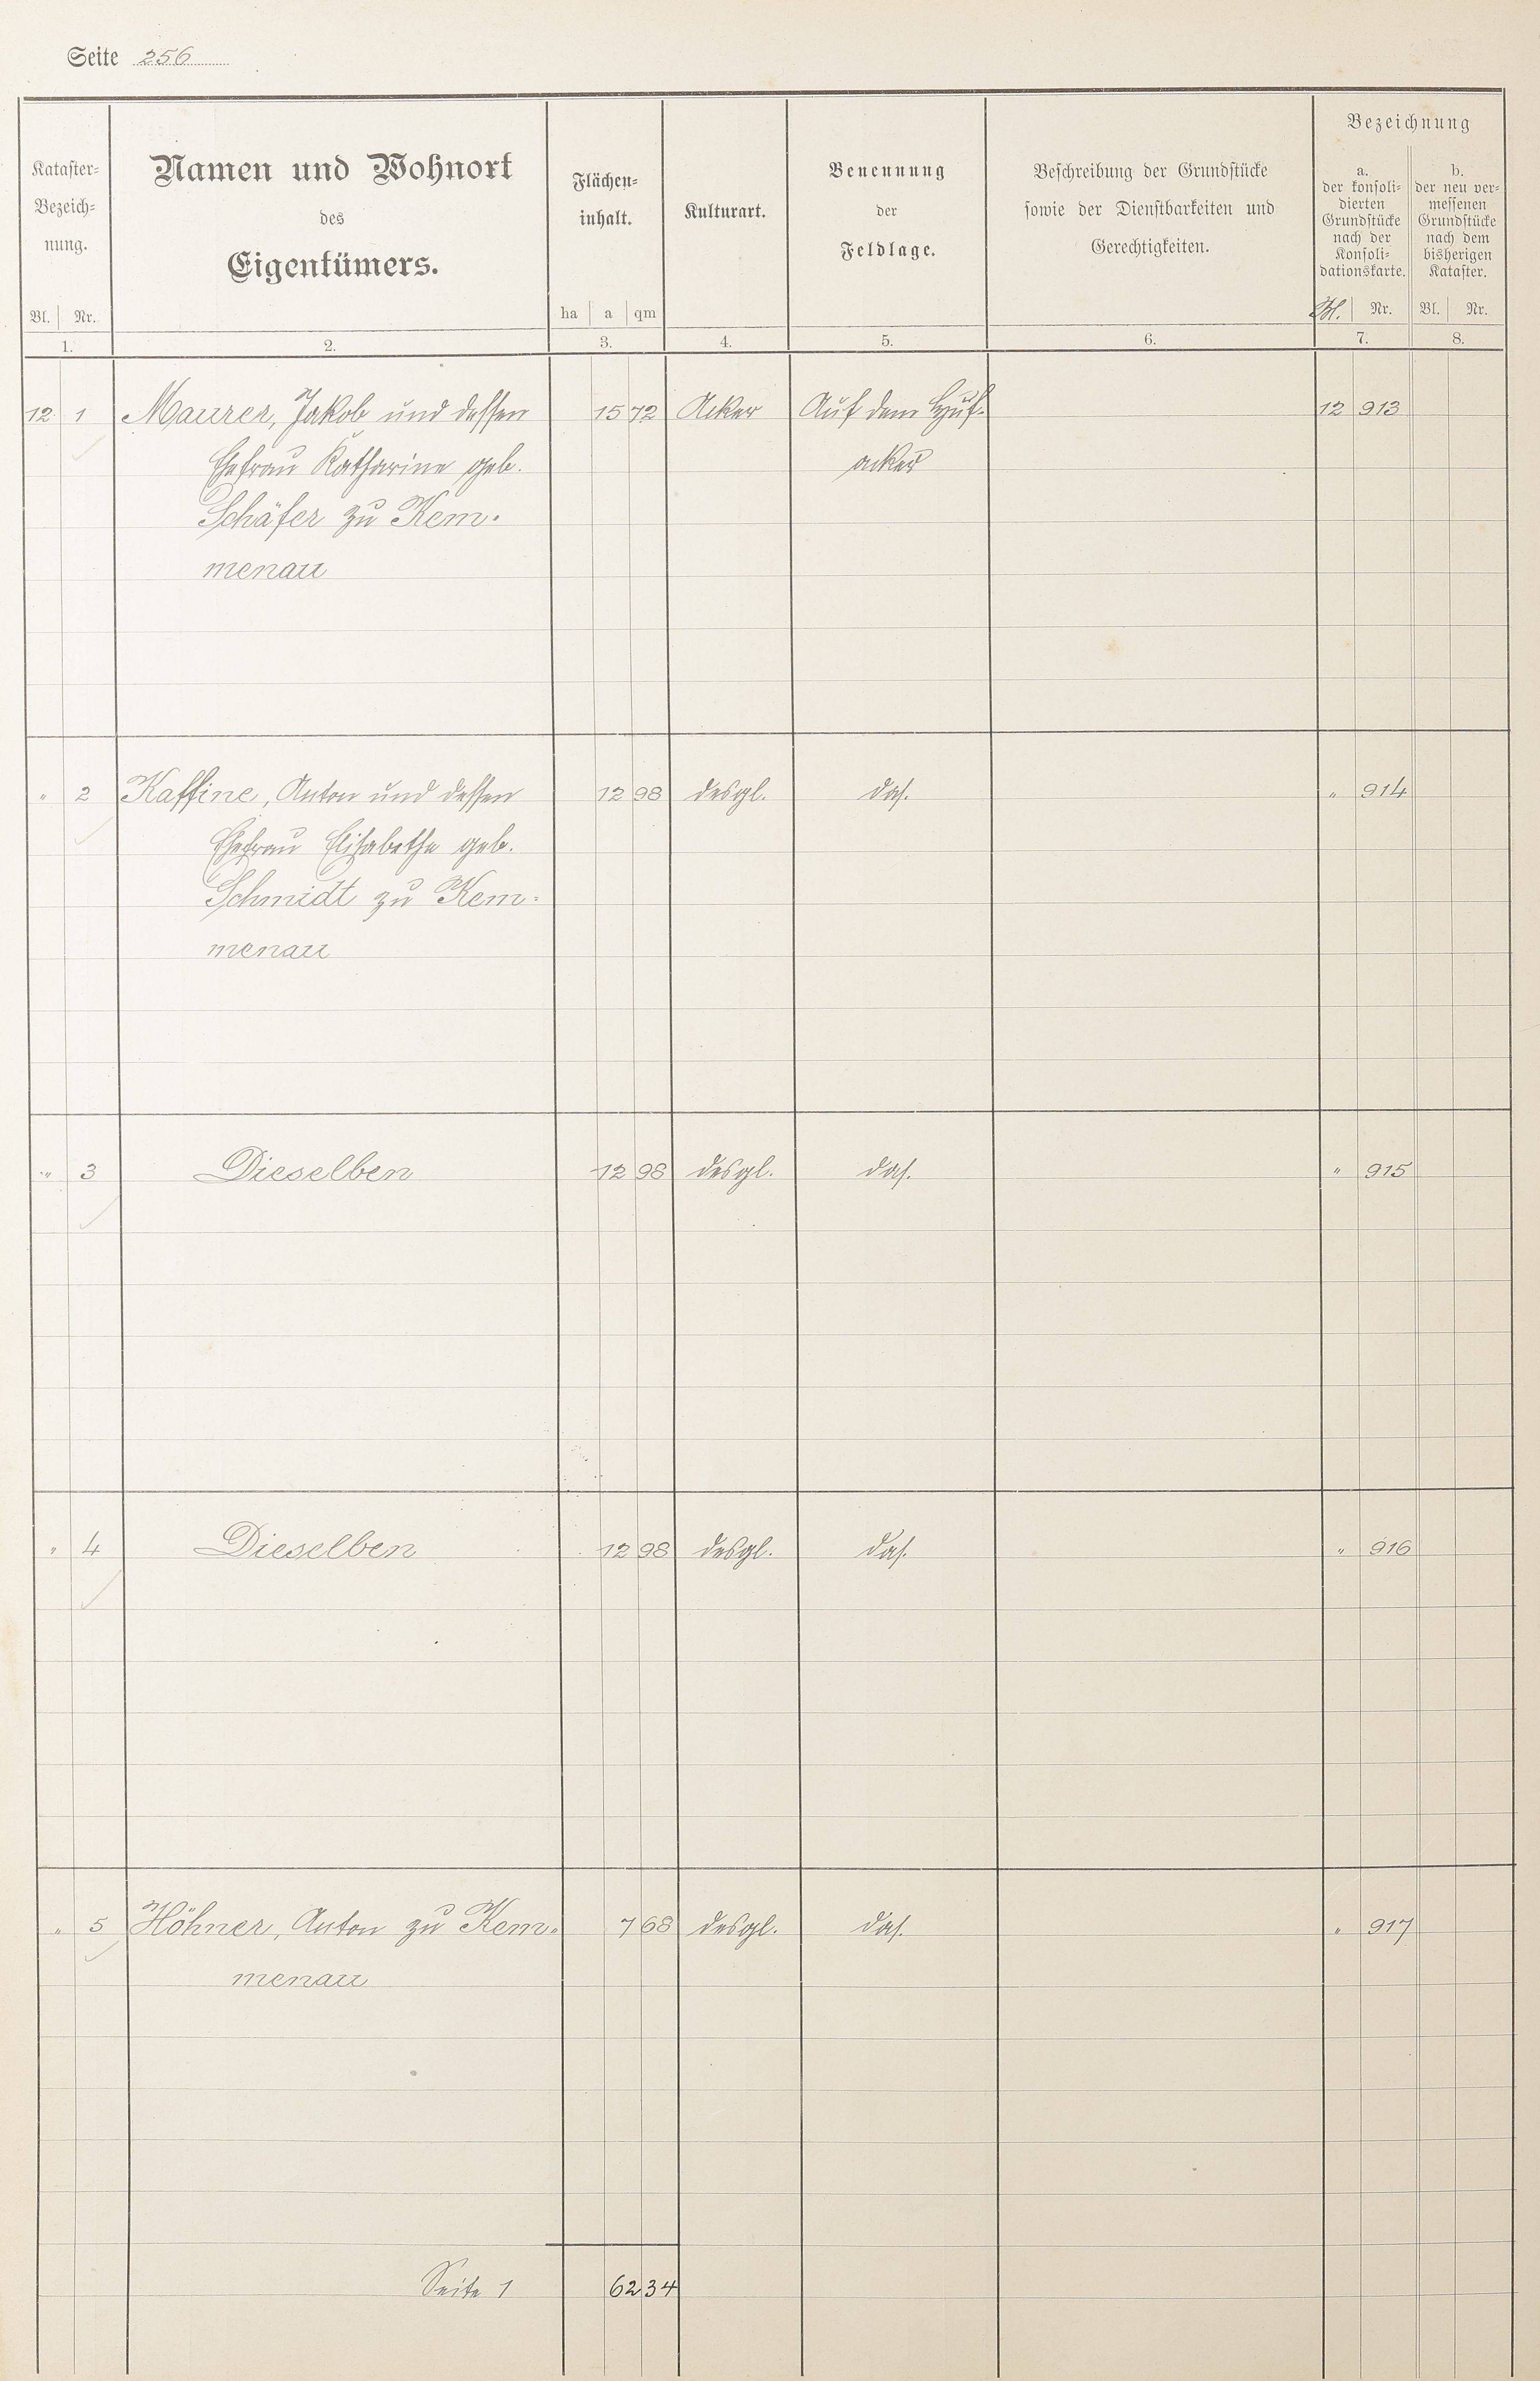 Seite 256
Kataster-
Bezeich-
nung.
Bl. Nr.
1.
Namen und Wohnort
des
Eigentümers.
2.
Flächen-
inhalt.
ha a qm
3.
Kulturart.
4.
Benennung
der
Feldlage.
5.
Beschreibung der Grundstücke
sowie der Dienstbarkeiten und
Gerechtigkeiten.
6.
Bezeichnung
a.
der konsoli-
dierten
Grundstücke
nach der
Konsoli-
dationskarte.
Bl. Nr.
7.
b.
der neu ver-
messenen
Grundstücke
nach dem
bisherigen
Kataster.
Bl. Nr.
8.
12 1 Maurer, Jakob und dessen 15 72 Acker Auf dem Huf- 12 913
Ehefrau Katharine geb. acker
Schäfer zu Kem-
menau
" 2 Kaffine, Anton und dessen 12 98 desgl. das. " 914
Ehefrau Elisabethe geb.
Schmidt zu Kem-
menau
" 3 Dieselben 12 98 desgl. das. " 915
" 4 Dieselben 12 98 desgl. das. " 916
" 5 Höhner, Anton zu Kem- 7 68 desgl. das. " 917
menau
Seite 1 62 34